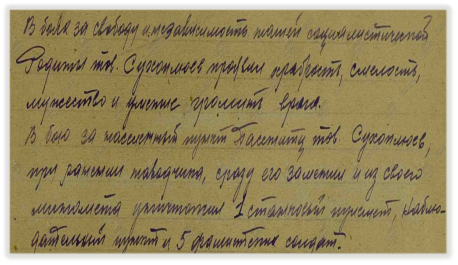 В боях за свободу и независимость нашей социалистической
Родины тов. Сухоплюев проявил храбрость, смелость,
мужество и умение громить врага.
В бою за населенный пункт тов. Сухоплюев,
при ранении наводчика, сразу его заменил и из своего
миномета уничтожил 1 станковый пулемет, наблю-
дательный пункт и 5 фашистских солдат.